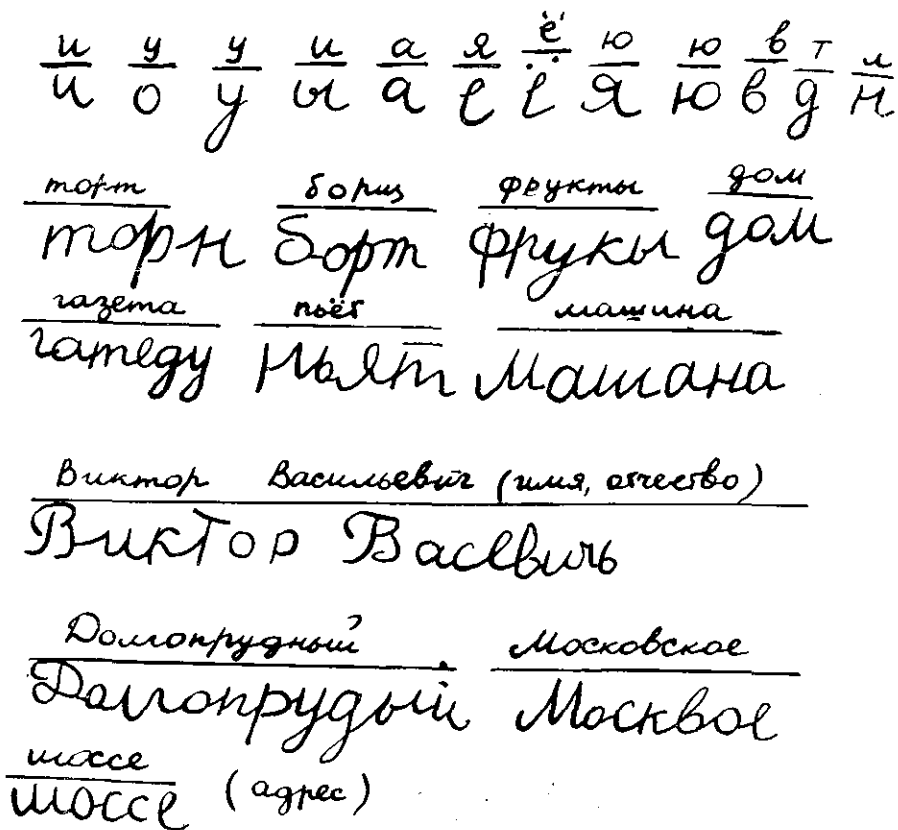 и у у и а я ё ю ю в т л
и о у ы а е ё я ю в д н
торт борщ фрукты дом
торн борт фрукы дом
газета пьёт машина
гатеду ньят машана
Виктор Васильевич (имя, отчество)
Виктор Васевичь
Долгопрудный Московское
Долгопрудый Москвое
шоссе
шоссе (адрес)